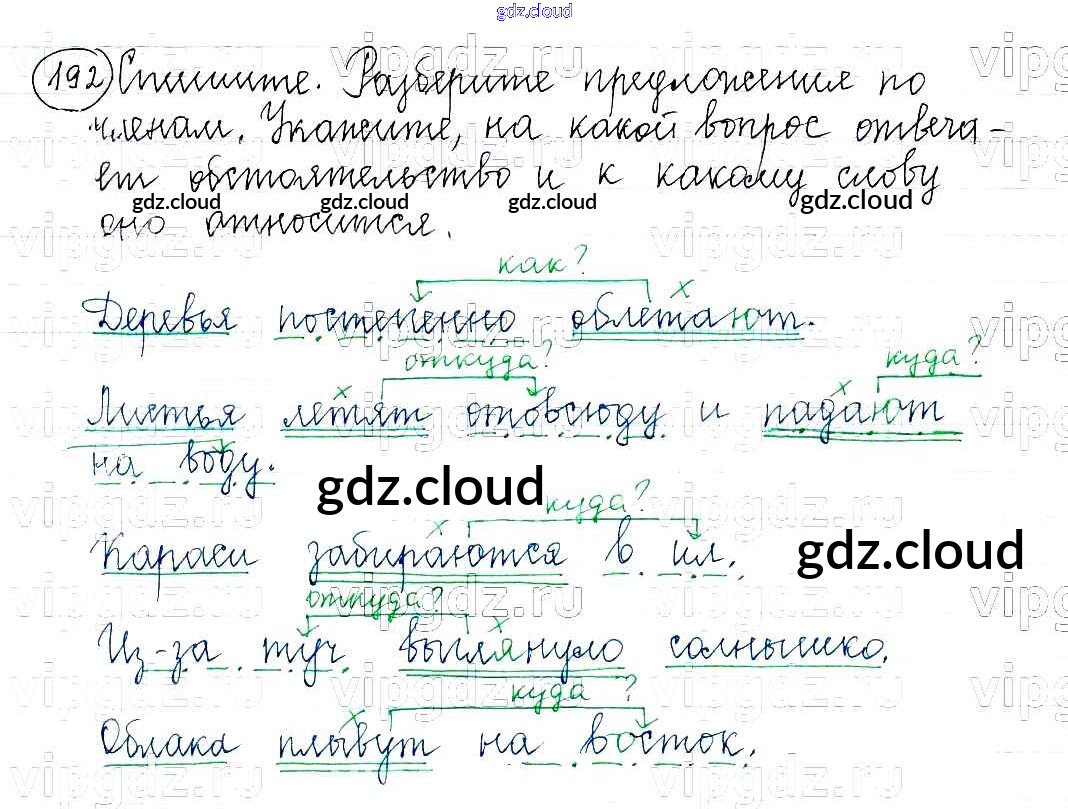 gdz.cloud
192 Спишите. Разберите предложения по
членам. Укажите, на какой вопрос отвеча-
ет обстоятельство и к какому слову
gdz.cloud gdz.cloud gdz.cloud gdz.cloud
оно относится.
как?
х
Деревья постепенно облетают.
откуда? куда?
х х
Листья летят отовсюду и падают
на воду.
gdz.cloud
куда?
х
Караси забираются в ил.
gdz.cloud
откуда?
х
Из-за туч выглянуло солнышко.
куда ?
х
Облака плывут на восток.
vipgdz.ru